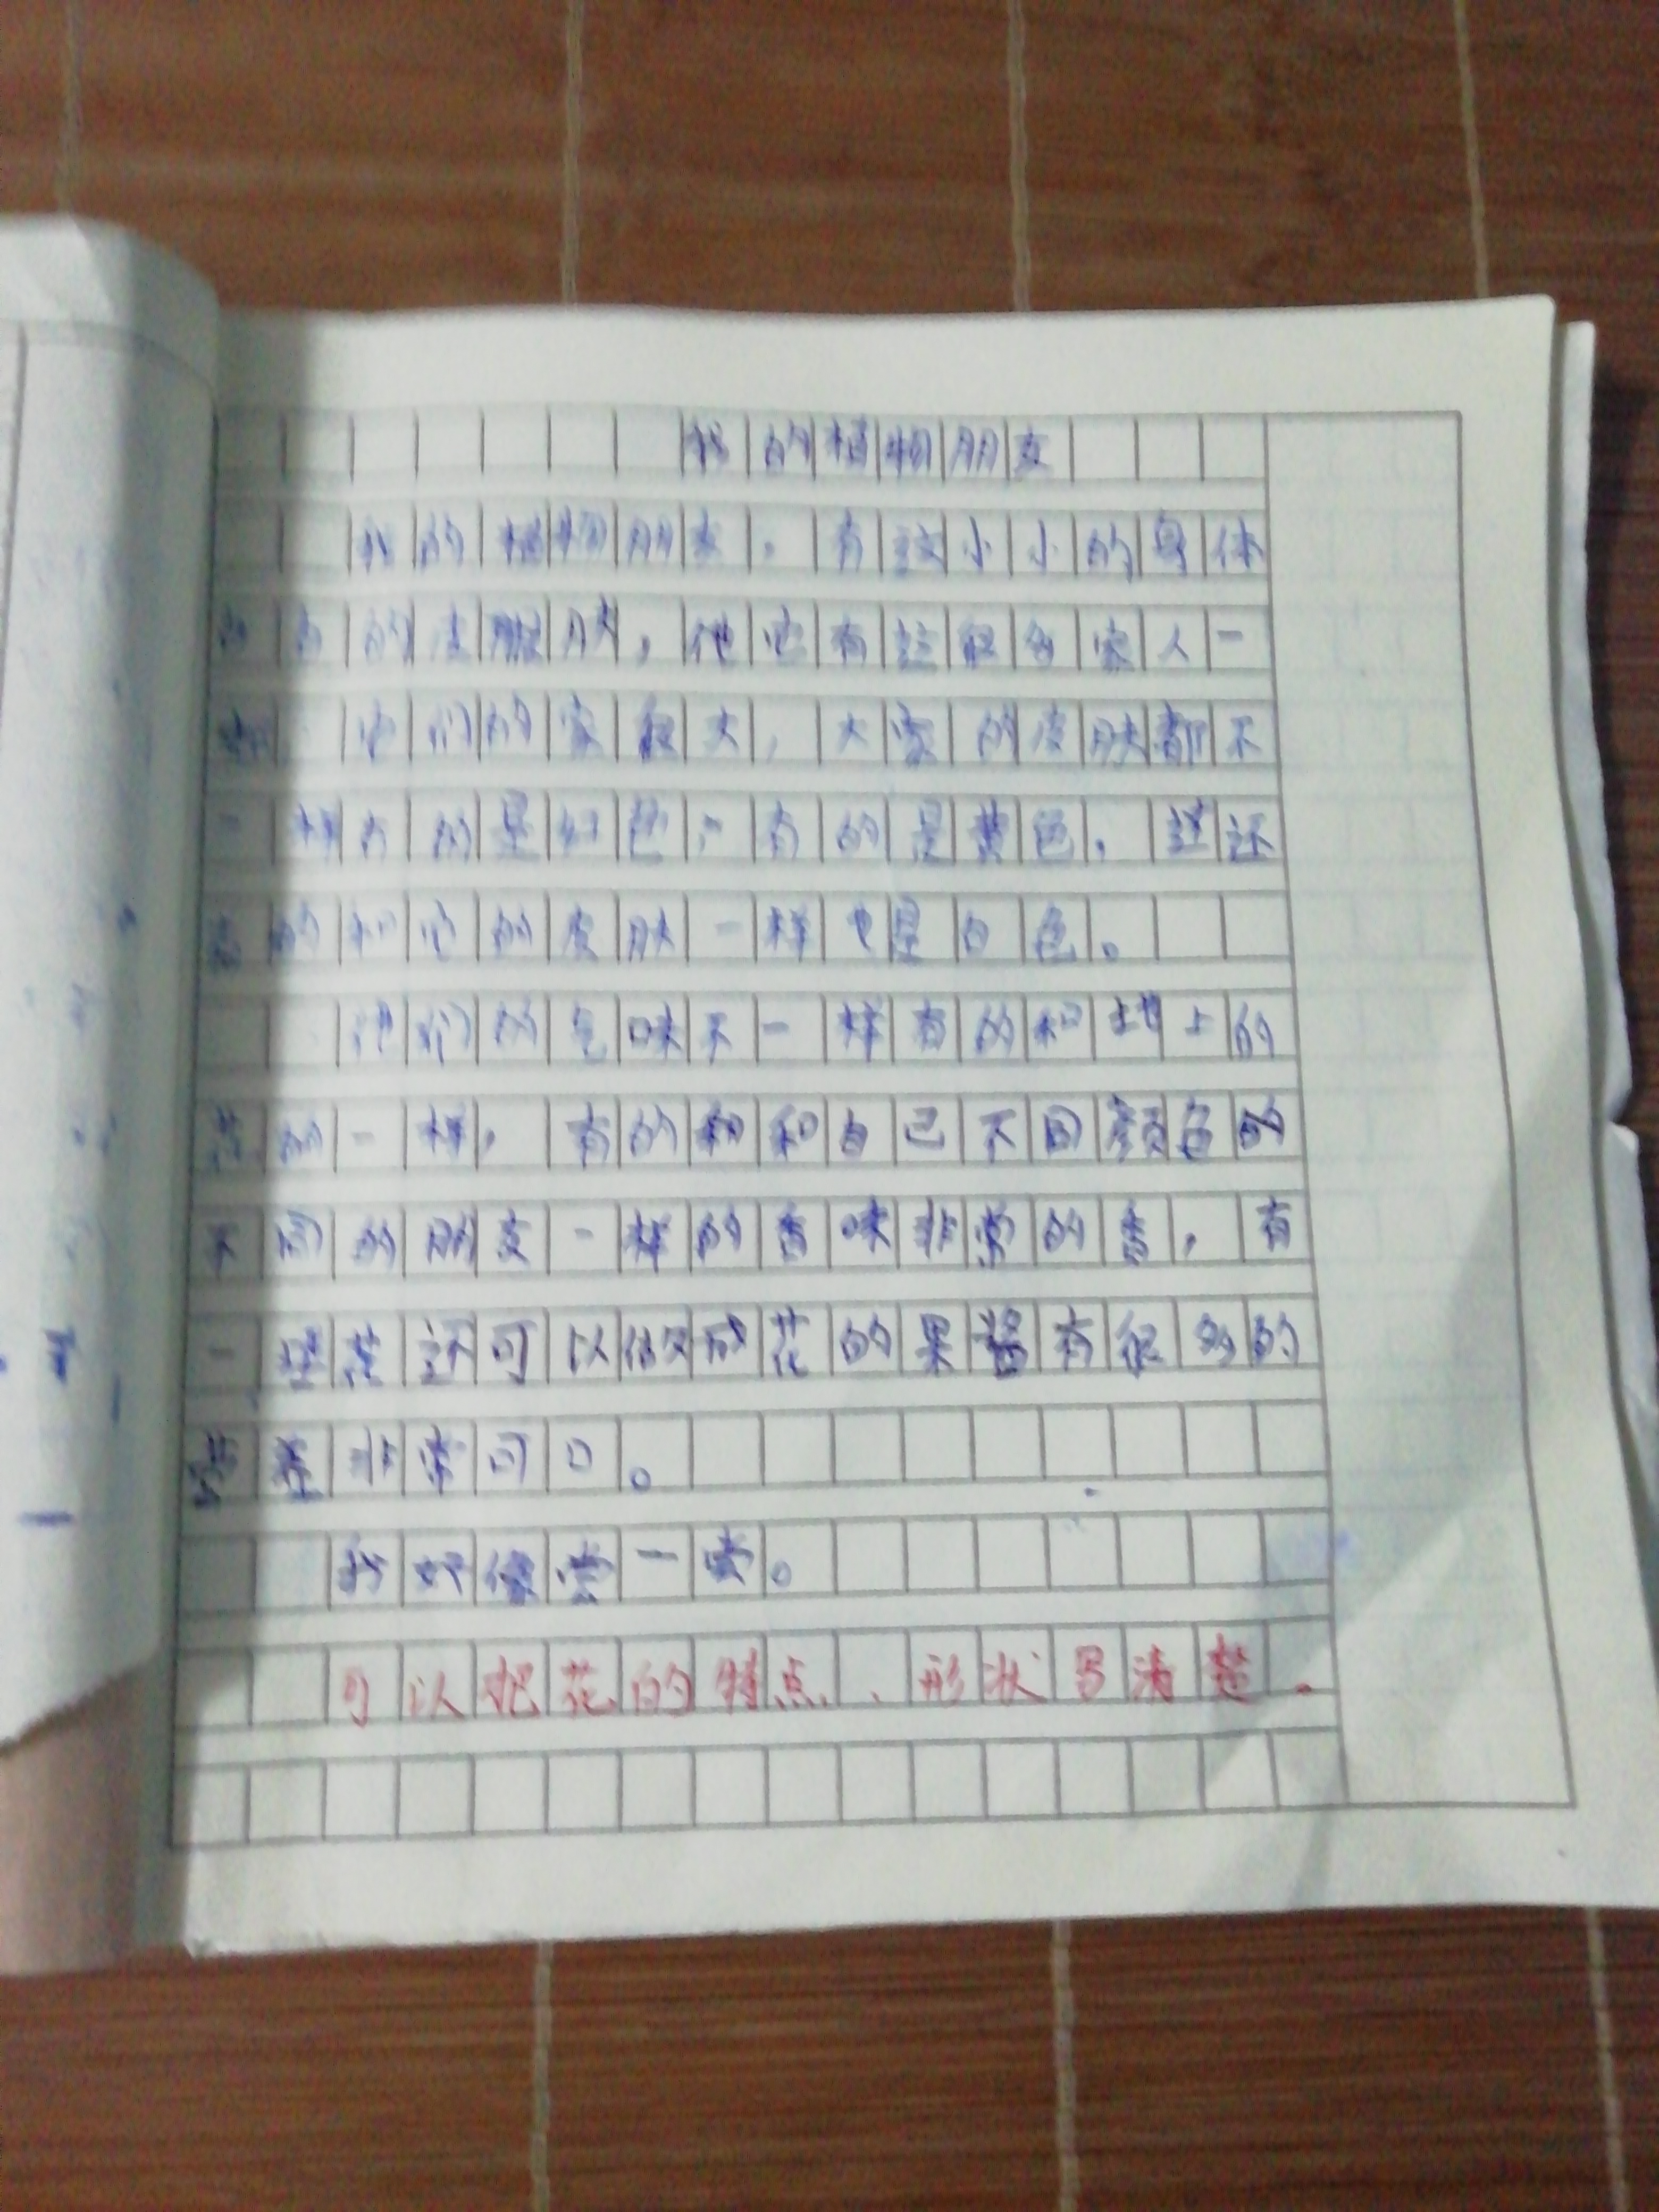 我的植物朋友
我的植物朋友，有这小小的身体
白的皮肤，他它有这很多家人一
他们的家很大，大家的皮肤都不
一样有的是红色，有的是黄色，还
的和他的皮肤一样也是白色。
他们的气味不一样有的和地上的
花的一样，有的和自己不同颜色的
不同的朋友一样的香味非常的香，有
一些花还可以做成花的果酱有很多的
非常可口。
我好像尝一尝。
可以把花的特点、形状写清楚.